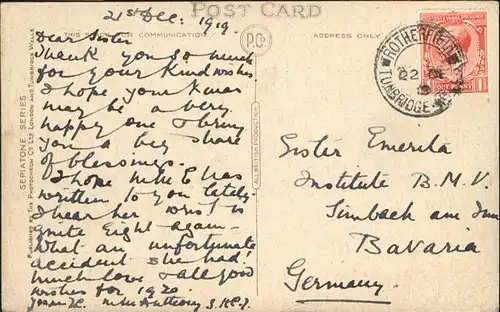 POST CARD
21st Dec. 1919.
THIS SPACE FOR COMMUNICATION.
ADDRESS ONLY
Dear Sister
Thank you so much
for your kind wishes.
I hope your Xmas
may be a very
happy one & bring
you a big share
of blessings.
I hope has
written to you lately.
I hear her wrist is
quite right again —
What an unfortunate
accident she had!
Much love & all good
wishes for 1920.
Anthony
P.Co
ALL BRITISH PRODUCTION
SEPIATONE SERIES
PUBLISHED BY THE PHOTOCHROM CO. LTD. LONDON AND TUNBRIDGE WELLS
ROTHERFIELD
22 DE
19
TUNBRIDGE
ONE PENNY
Sister Emerita
Institute B.M.V.
Simbach am Inn
Bavaria
Germany.